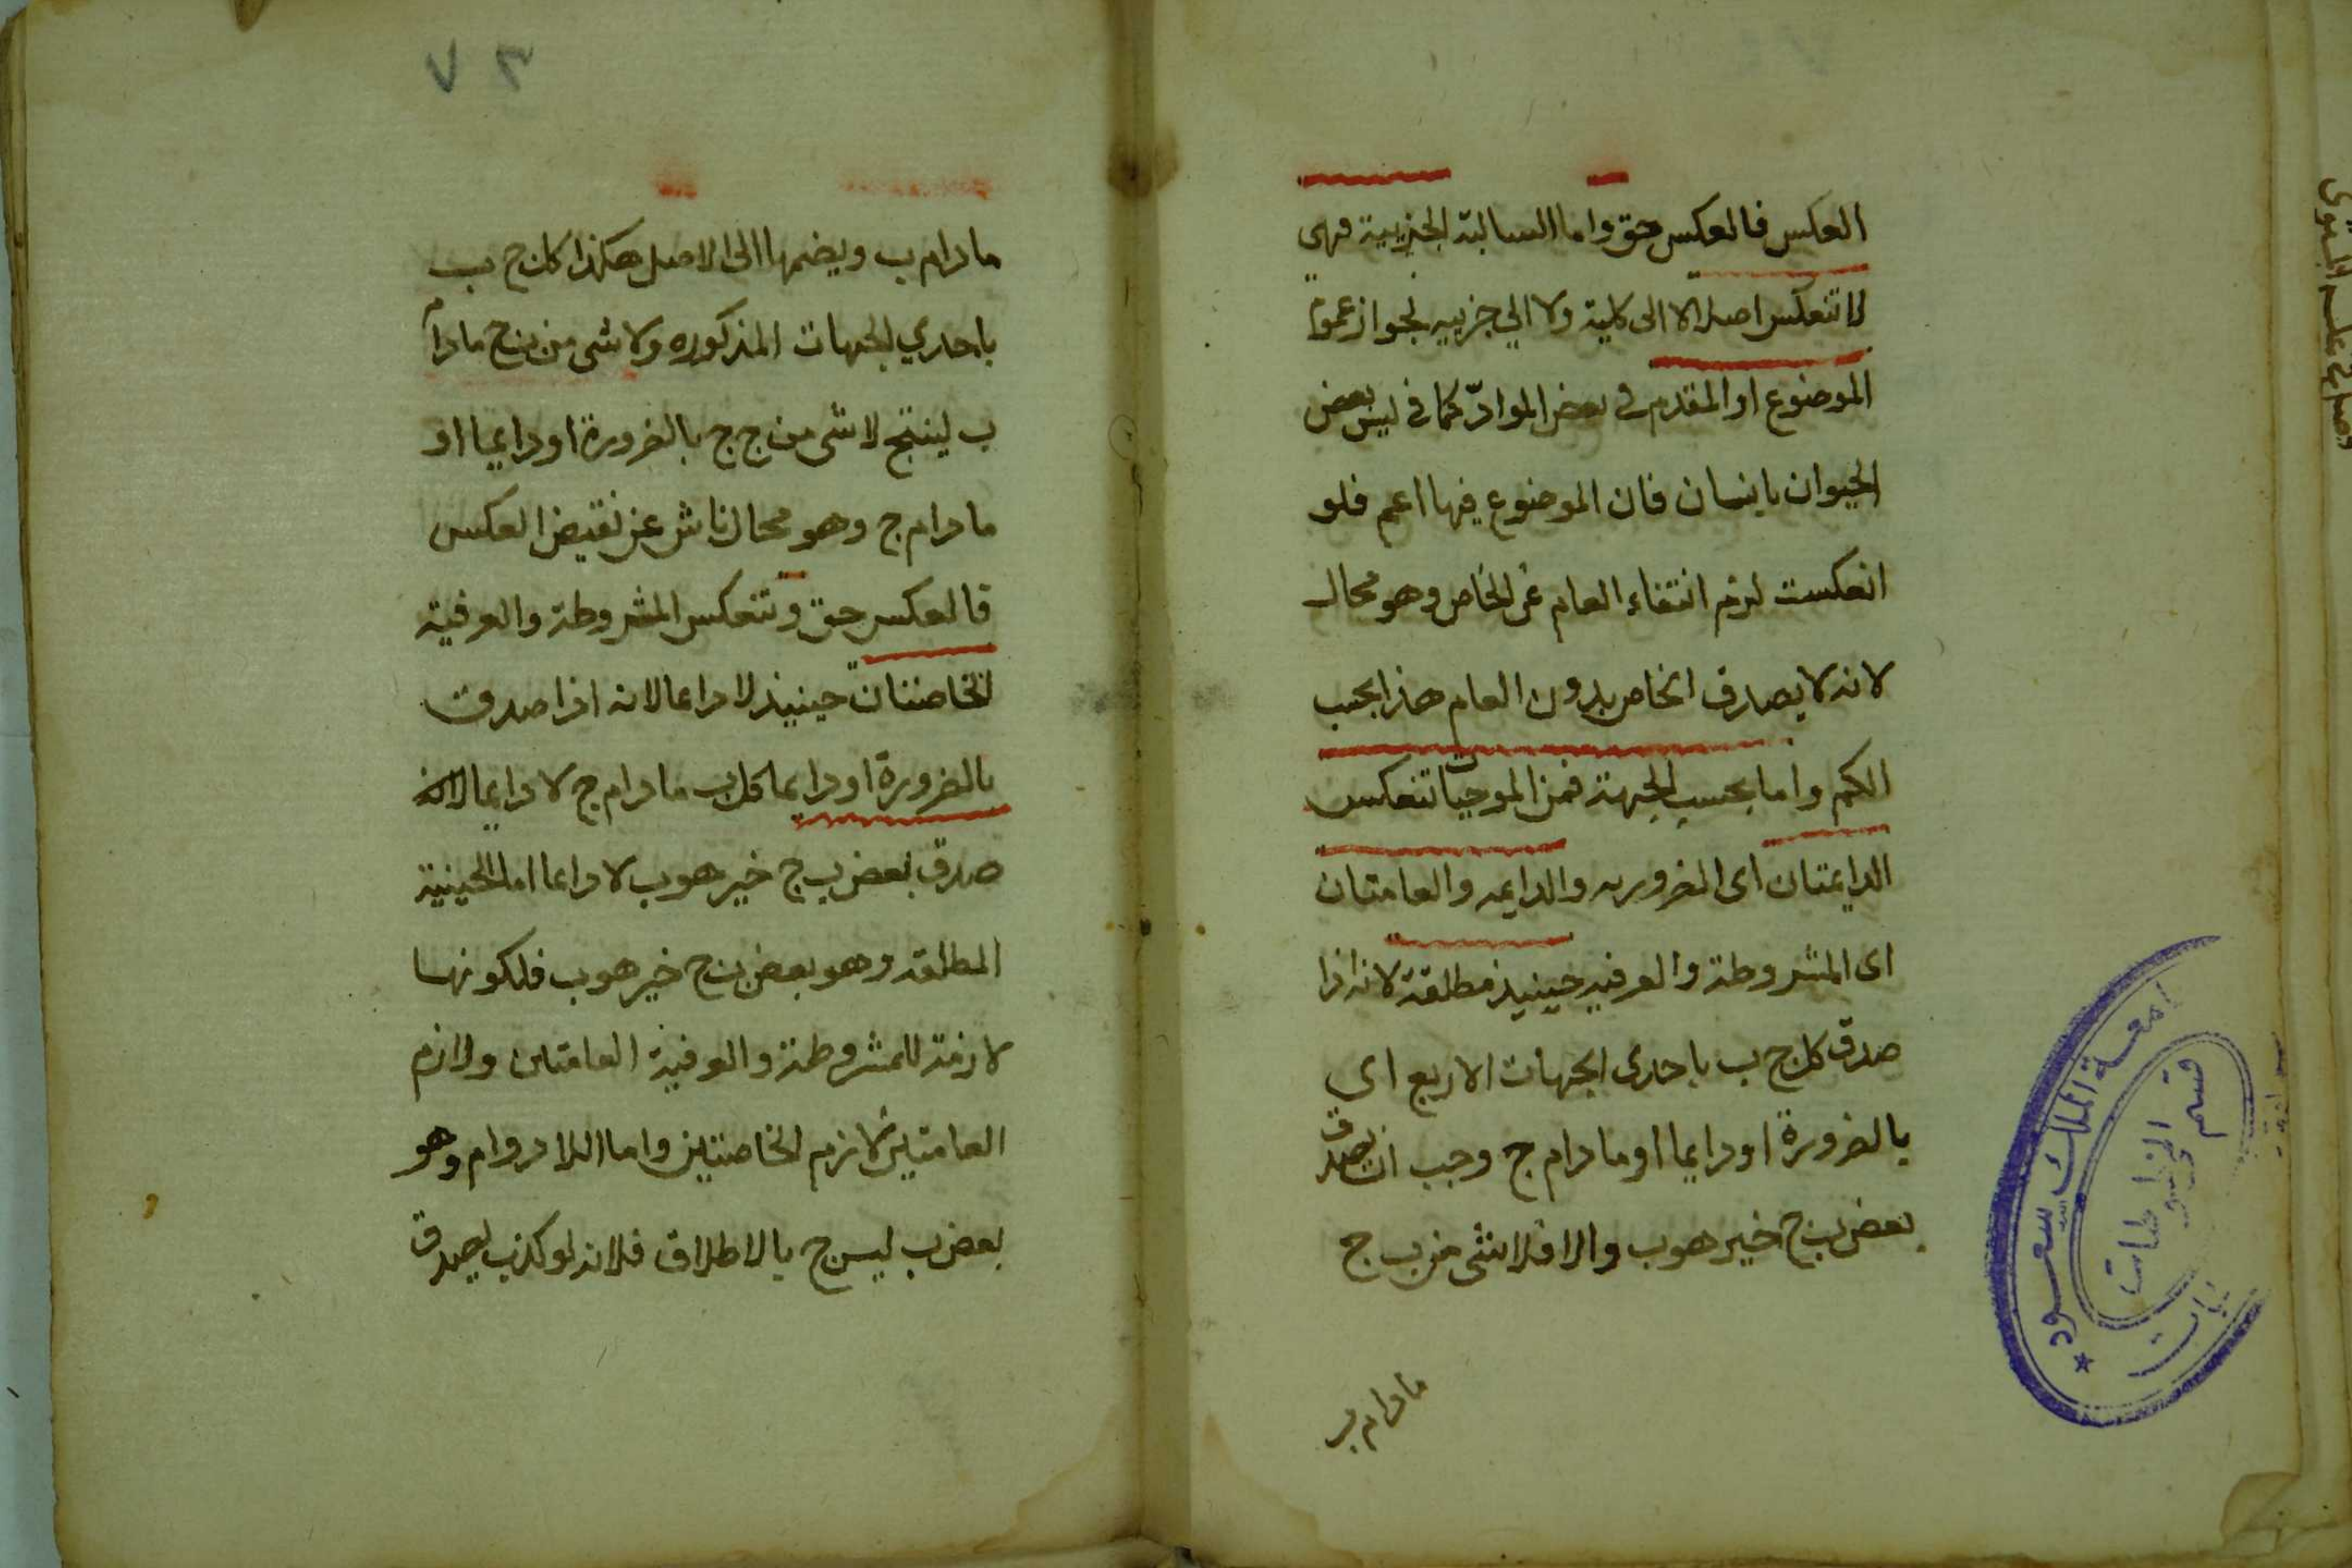 العكس فالعكس حق واما السالبة الجزيية فهى
لا تنعكس اصلا لا الى كلية ولا الي جزييه لجواز عموم
الموضوع او المقدم في بعض المواد كما في ليس بعض
الحيوان بانسان فان الموضوع فيها اعم فلو
انعكست لزم انتفاء العام عن الخاص وهو محال
لانه لا يصدق الخاص بدون العام هذا بحسب
الكم واما بحسب الجهة فمن الموجبات تنعكس
الدايمتان اى الضروريه والدايمه والعامتان
اى المشروطة والعرفيه حينيذ مطلقة لانه اذا
صدق كل ج ب باحدى الجهات الاربع اي
بالضرورة او دايما او مادام ج وجب ان يصدق
بعض ب ج حين هو ب والا فلا شى من ب ج
مادام ب
٧٣
مادام ب ويضمها الى الاصل هكذا كل ج ب
باحدي الجهات المذكوره ولا شى من ب ج مادام
ب لينتج لا شى من ج ج بالضرورة او دايما او
مادام ج وهو محال ناش عن نقيض العكس
فالعكس حق وتنعكس المشروطة والعرفية
الخاصتان حينيذ لا دايما لانه اذا صدق
بالضرورة او دايما كل ب مادام ج لا دايما لانه
صدق بعض ب ج حين هو ب لا دايما اما الحينية
المطلقه وهو بعض ب ج حين هو ب فلكونها
لازمة للمشروطة والعرفية العامتين ولازم
العامتين لازم الخاصتين واما اللا دوام وهو
بعض ب ليس ج بالاطلاق فلانه لو كذب لصدق
جامعة الملك سعود
قسم المخطوطات